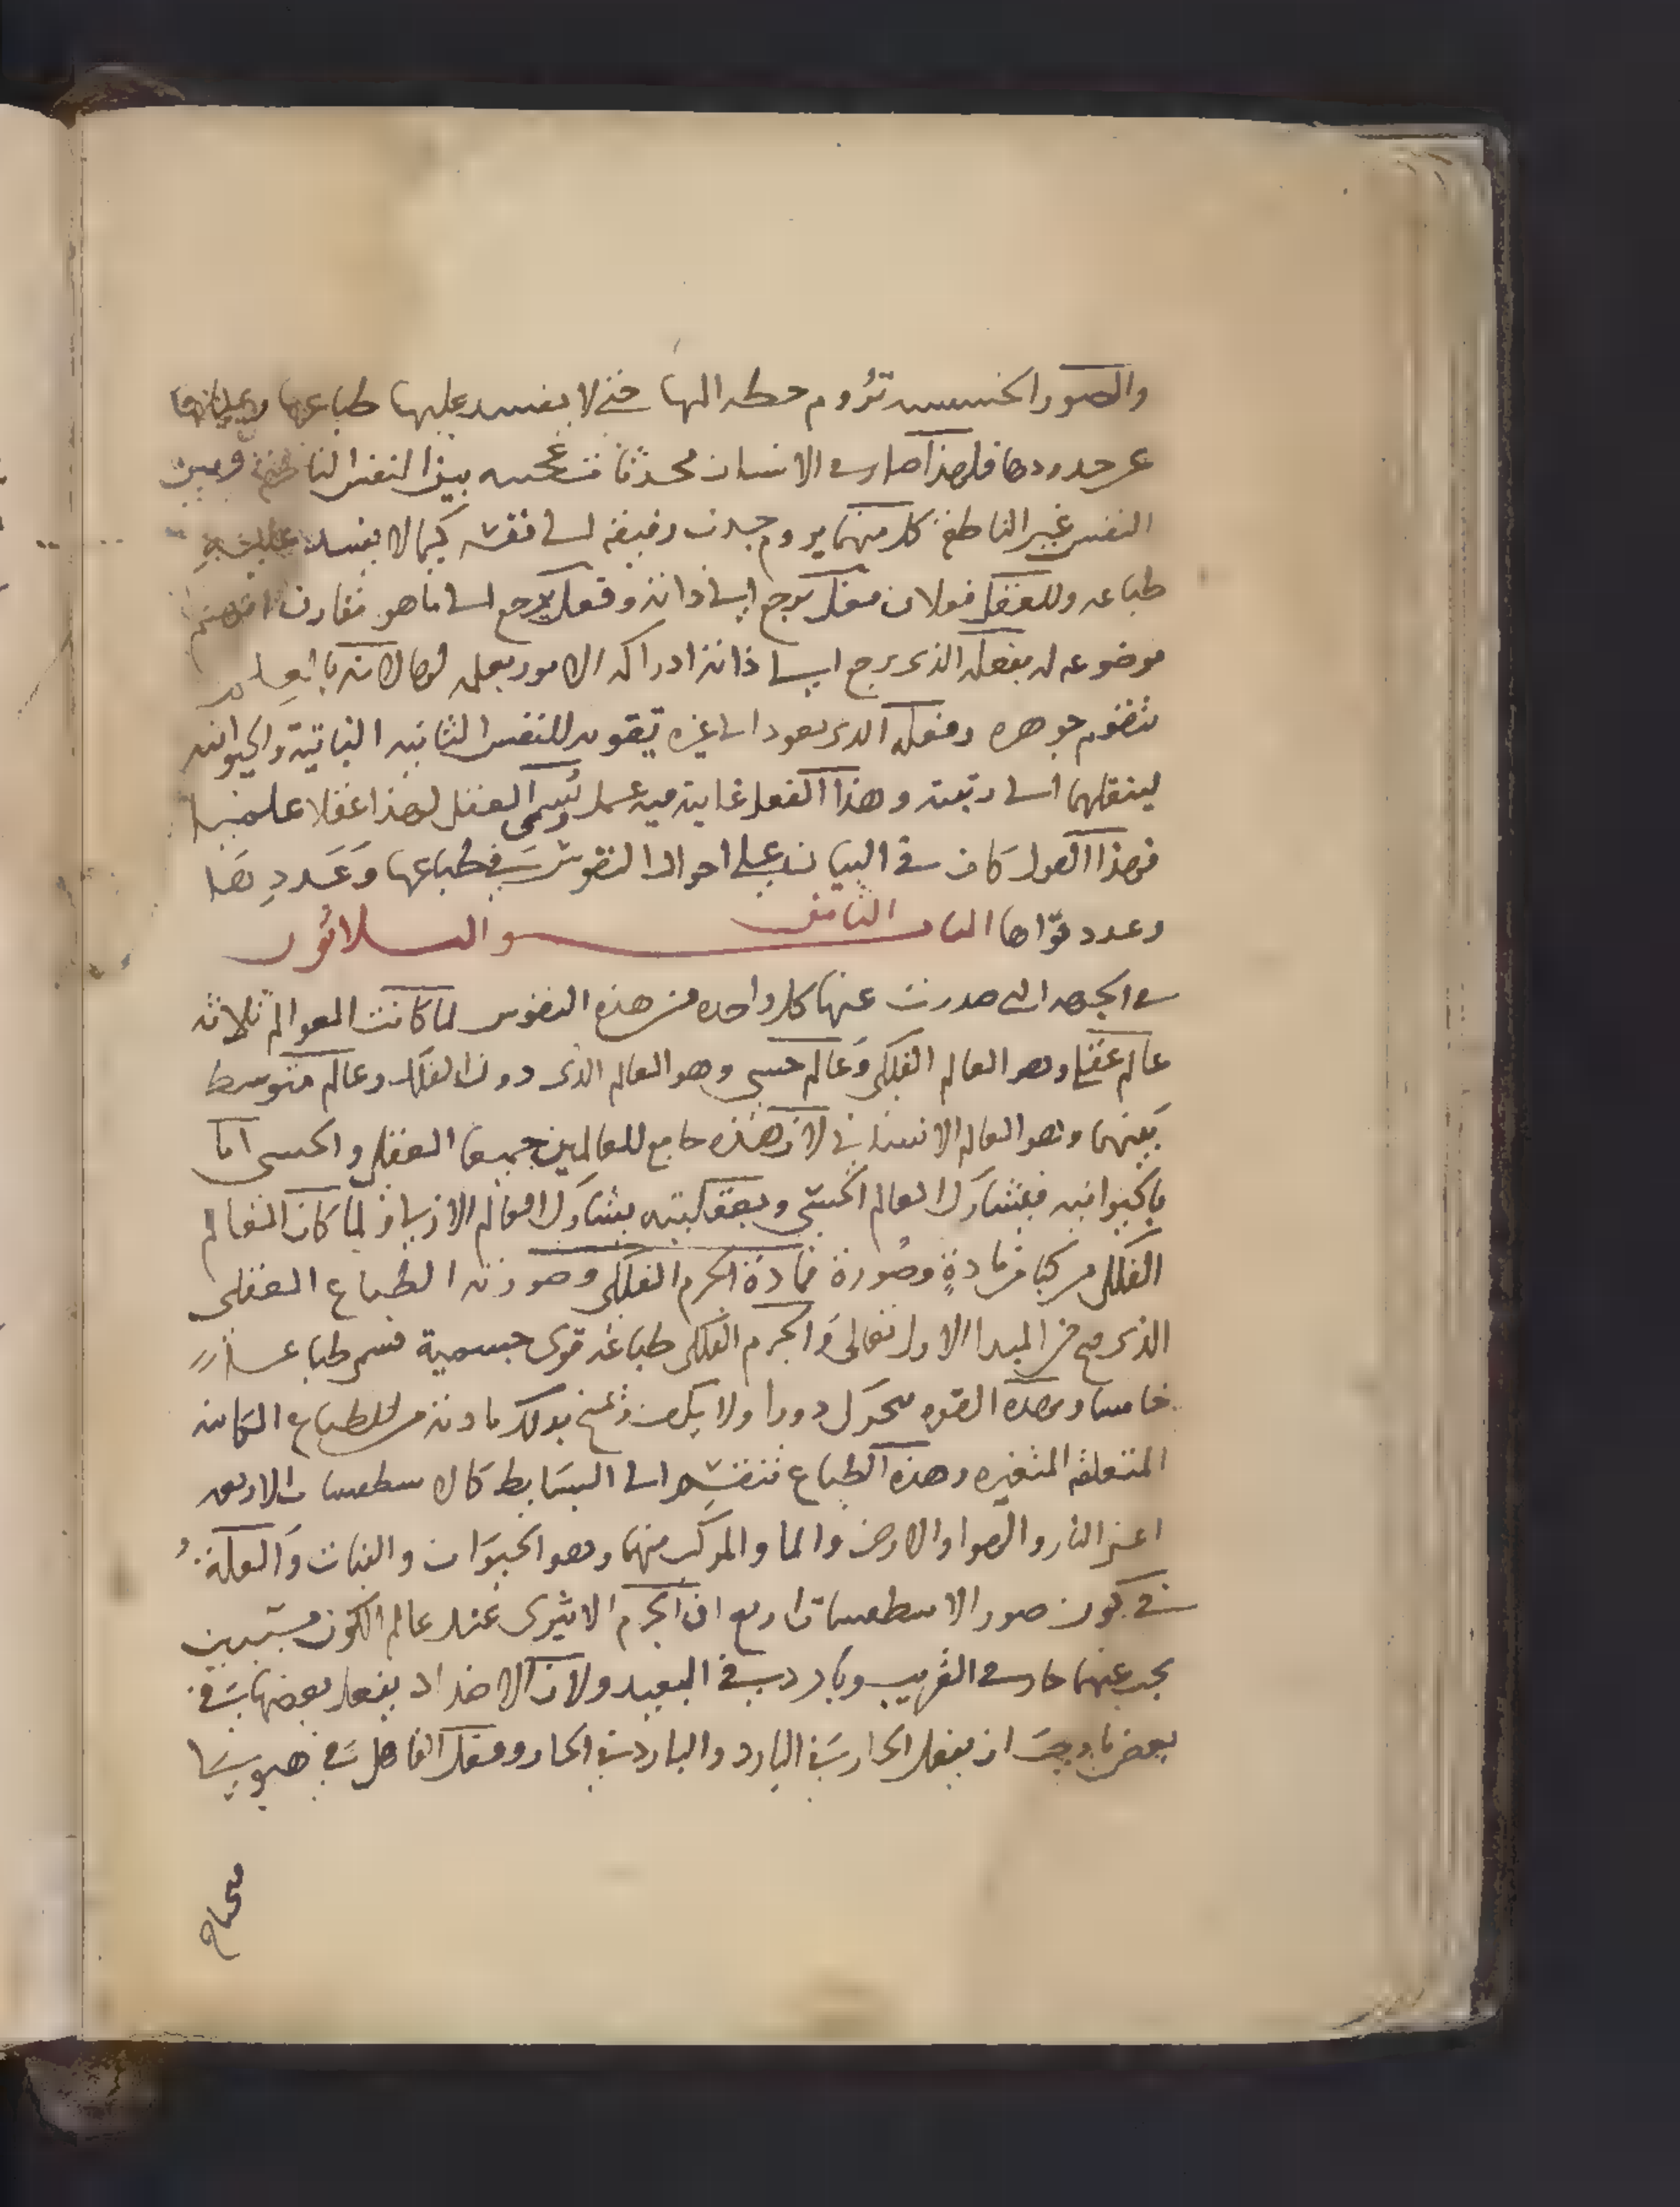 والصور الخسيسه تروم حطه اليها حتى لا يفسد عليها طباعها
عن حدودها فلهذا صار في الانسان محدثا بين النفس الناطقة وبين
النفس غير الناطقة كل منهما يروم جذب رفيقه الى نفسه كيما لا يفسد عليه
طباعه وللعقل فعلان فعل يرجع الى ذاته وفعل يرجع الى ما هو مقارن
موضوعه له بفعله الذي يرجع الى ذاته ادراكه الامور بعلمه لها لانه بالعلم
يتقوم جوهره وفعله الذي يعود الى غيره تقويمه للنفس الثانيه النباتية والحيوانيه
لينقلهما الى رتبته وهذا الفعل غايته فيه عمل وسمى العقل لهذا عقلا علميا
فهذا القول كاف في البيان على احوال النفوس في طباعها وعددها
وعدد قواها الباب الثامن والثلاثون
في الجهه التي صدرت عنها كل واحده من هذه النفوس لما كانت العوالم ثلاثه
عالم عقلي وهو العالم الفلكي وعالم حسي وهو العالم الذي دون الفلك وعالم متوسط
بينهما وهو العالم الانساني لان هذه جامع للعالمين جميعا العقلي والحسي اما
بالحيوانيه فيشارك العالم الحسي وبعقليته يشارك العالم الازلي ولما كان العالم
الفلكي مركبا من مادةٍ وصورة فمادة الجرم الفلكي وصورته الطباع العقلي
الذي من المبدا الاول تعالى والجرم الفلكي طباعه قوى جسمية فسمى طباعا
خامسا وبهذه القوه يتحرك دورا ولا يكون بذلك مادته من الطباع الكاينه
المتعلقه المتغيره وهذه الطباع تنقسم الى البسايط كالاسطقسات الاربعه
اعني النار والهوا والارض والما والمركب منها وهو الحيوان والنبات والعلة
في كون صور الاسطقسات اربع ان الجرم الاثيري عند عالم الكون
يجب عنهما حار في القريب وبارد في البعيد ولان الاضداد يفعل بعضها في
بعض ما وجب ان يفعل الحار في البارد والبارد في الحار وفعل الفاعل في